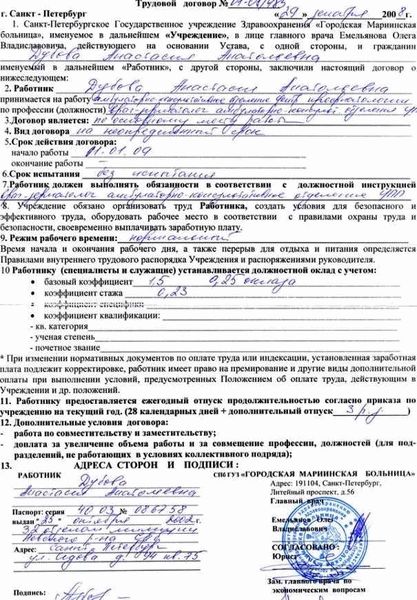 Трудовой договор № 01-04/483
г. Санкт - Петербург « 29 » декабря 2008 г.
1. Санкт-Петербургское Государственное учреждение Здравоохранения «Городская Мариинская
больница», именуемое в дальнейшем «Учреждение», в лице главного врача Емельянова Олега
Владиславовича, действующего на основании Устава, с одной стороны, и гражданин
Дубова Анастасия Анатольевна
именуемый в дальнейшем «Работник», с другой стороны, заключили настоящий договор о
нижеследующем:
2. Работник Дубова Анастасия Анатольевна
принимается на работу амбулаторно-консультативное отделение
по профессии (должности) врач-дерматолог амбулаторно
3.Договор является: по основному месту работы
4. Вид договора на неопределенный срок
5.Срок действия договора:
начало работы 01.01.09
окончание работы
6.Срок испытания без испытания
7.Работник должен выполнять обязанности в соответствии с должностной инструкцией
врач-дерматолог амбулаторно-консультативное отделение
8. Учреждение обязано организовать труд Работника, создать условия для безопасного и
эффективного труда, оборудовать рабочее место в соответствии с правилами охраны труда и
безопасности, своевременно выплачивать заработную плату.
9. Режим рабочего времени: нормальный
Время начала и окончания рабочего дня, а также перерыв для отдыха и питания определяется
Правилами внутреннего трудового распорядка Учреждения и распоряжениями руководителя.
10 Работнику (специалисты и служащие) устанавливается должностной оклад с учетом:
• базовый коэффициент 1,5 0,25 оклада
• коэффициент стажа 0,23
• коэффициент специфики
• коэффициент квалификации:
- кв. категория
- ученая степень
- почетное звание
* При изменении нормативных документов по оплате труда или индексации, установленная заработная
плата подлежит корректировке, работник имеет право на премирование и другие виды дополнительной
оплаты при выполнении условий, предусмотренных Положением об оплате труда, действующим в
Учреждении и др. положений.
11. Работнику предоставляется ежегодный отпуск продолжительностью согласно приказа по
учреждению на текущий год. (28 календарных дней + дополнительный отпуск 3 р.д )
12. Дополнительные условия договора:
- работа по совместительству и заместительству;
- доплата за увеличение объема работы и за совмещение профессии, должностей (для под-
разделений, не работающих в условиях коллективного подряда);
13. АДРЕСА СТОРОН И ПОДПИСИ :
РАБОТНИК СПб ГУЗ «ГОРОДСКАЯ МАРИИНСКАЯ БОЛЬНИЦА»
Дубова Адрес: 191104, Санкт-Петербург,
Анастасия Анатольевна Литейный проспект, д.56
Главный врач
Паспорт: серия 40 03 № 086758 Емельянов Олег
выдан "25" октября 2002 г. Владиславович
32 отделом милиции СОГЛАСОВАНО:
Невского р-на СПб Юрист
Адрес: Санкт-Петербург
ул. Седова д. кв. 73
Зам. главного врача по
экономическим вопросам
Подпись: